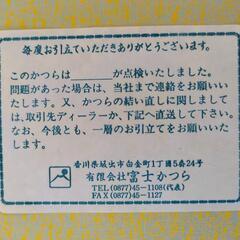 毎度お引立ていただきありがとうございます。
このかつらは______が点検いたしました。
問題があった場合は、当社まで連絡をお願いいたします。又、かつらの結い直しに関しましては、取引先ディーラーか、下記へ直送して下さい。
なお、今後とも、一層のお引立てをお願いいたします。
香川県坂出市白金町1丁目5番24号
有限会社富士かつら
TEL (0877)45-1108(代表)
FAX (0877)45-1127